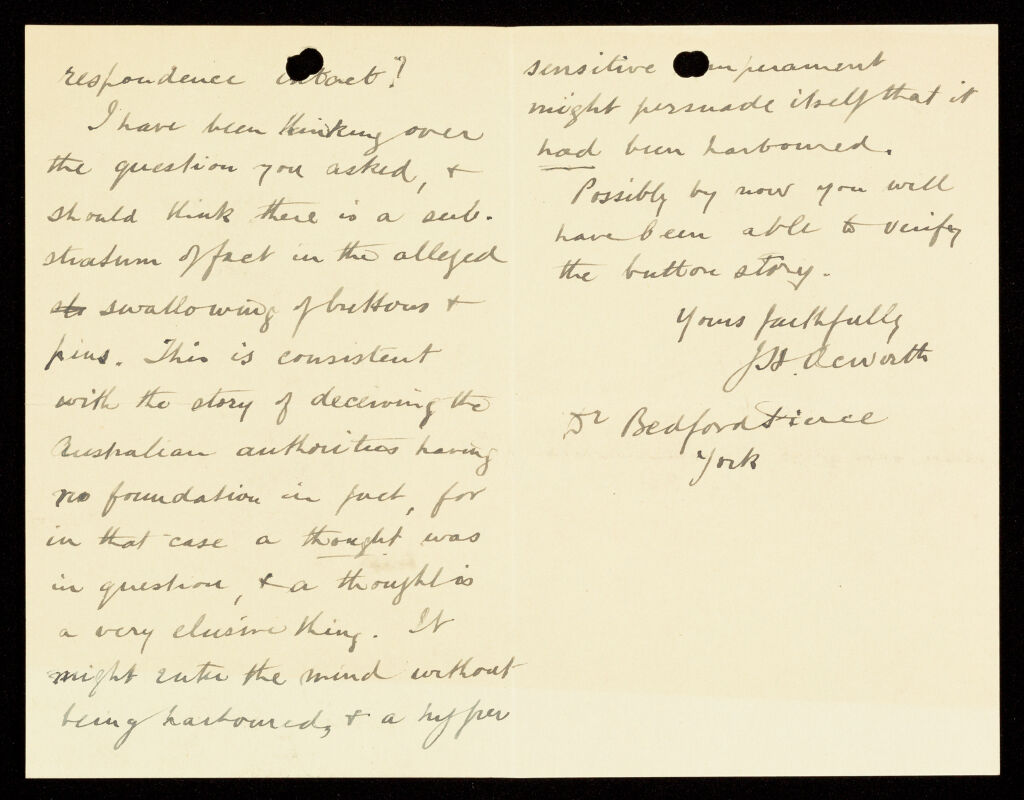 respondence intact?
I have been thinking over
the question you asked, &
should think there is a sub-
stratum of fact in the alleged
swallowing of buttons &
pins. This is consistent
with the story of deceiving the
Australian authorities having
no foundation in fact, for
in that case a thought was
in question, & a thought is
a very elusive thing. It
might enter the mind without
being harboured, & a hyper
sensitive temperament
might persuade itself that it
had been harboured.
Possibly by now you will
have been able to verify
the button story.
Yours faithfully
J H. Acworth
Dr Bedford Pierce
York